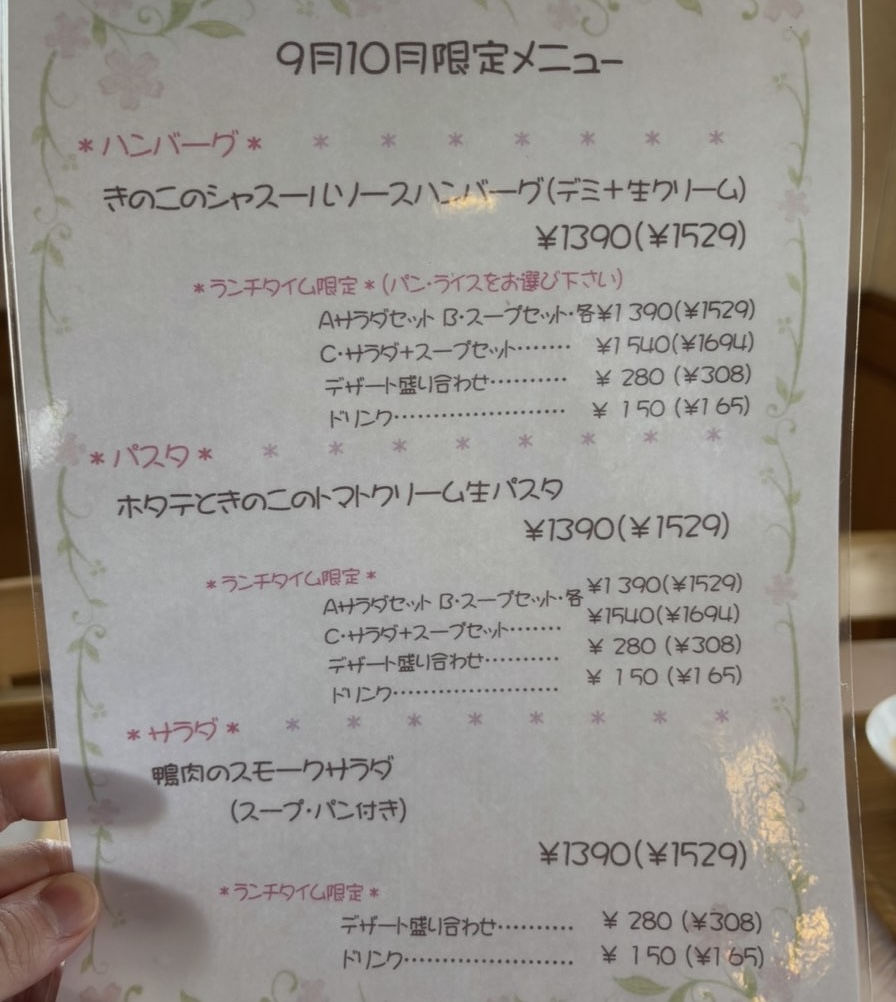 9月10月限定メニュー
*ハンバーグ* * * * * * * *
きのこのシャスールソースハンバーグ(デミ+生クリーム)
¥1390(¥1529)
*ランチタイム限定*(パン・ライスをお選び下さい)
Aサラダセット B・スープセット・各¥1390(¥1529)
C・サラダ+スープセット・・・・・・・ ¥1540(¥1694)
デザート盛り合わせ・・・・・・・・・・ ¥ 280 (¥308)
ドリンク・・・・・・・・・・・・・・・・・・・・・・ ¥ 150 (¥165)
*パスタ* * * * * * * * *
ホタテときのこのトマトクリーム生パスタ
¥1390(¥1529)
*ランチタイム限定*
Aサラダセット B・スープセット・各¥1390(¥1529)
C・サラダ+スープセット・・・・・・・ ¥1540(¥1694)
デザート盛り合わせ・・・・・・・・・・ ¥ 280 (¥308)
ドリンク・・・・・・・・・・・・・・・・・・・・・・ ¥ 150 (¥165)
*サラダ* * * * * * * * *
鴨肉のスモークサラダ
(スープ・パン付き)
¥1390(¥1529)
*ランチタイム限定*
デザート盛り合わせ・・・・・・・・・・ ¥ 280 (¥308)
ドリンク・・・・・・・・・・・・・・・・・・・・・・ ¥ 150 (¥165)